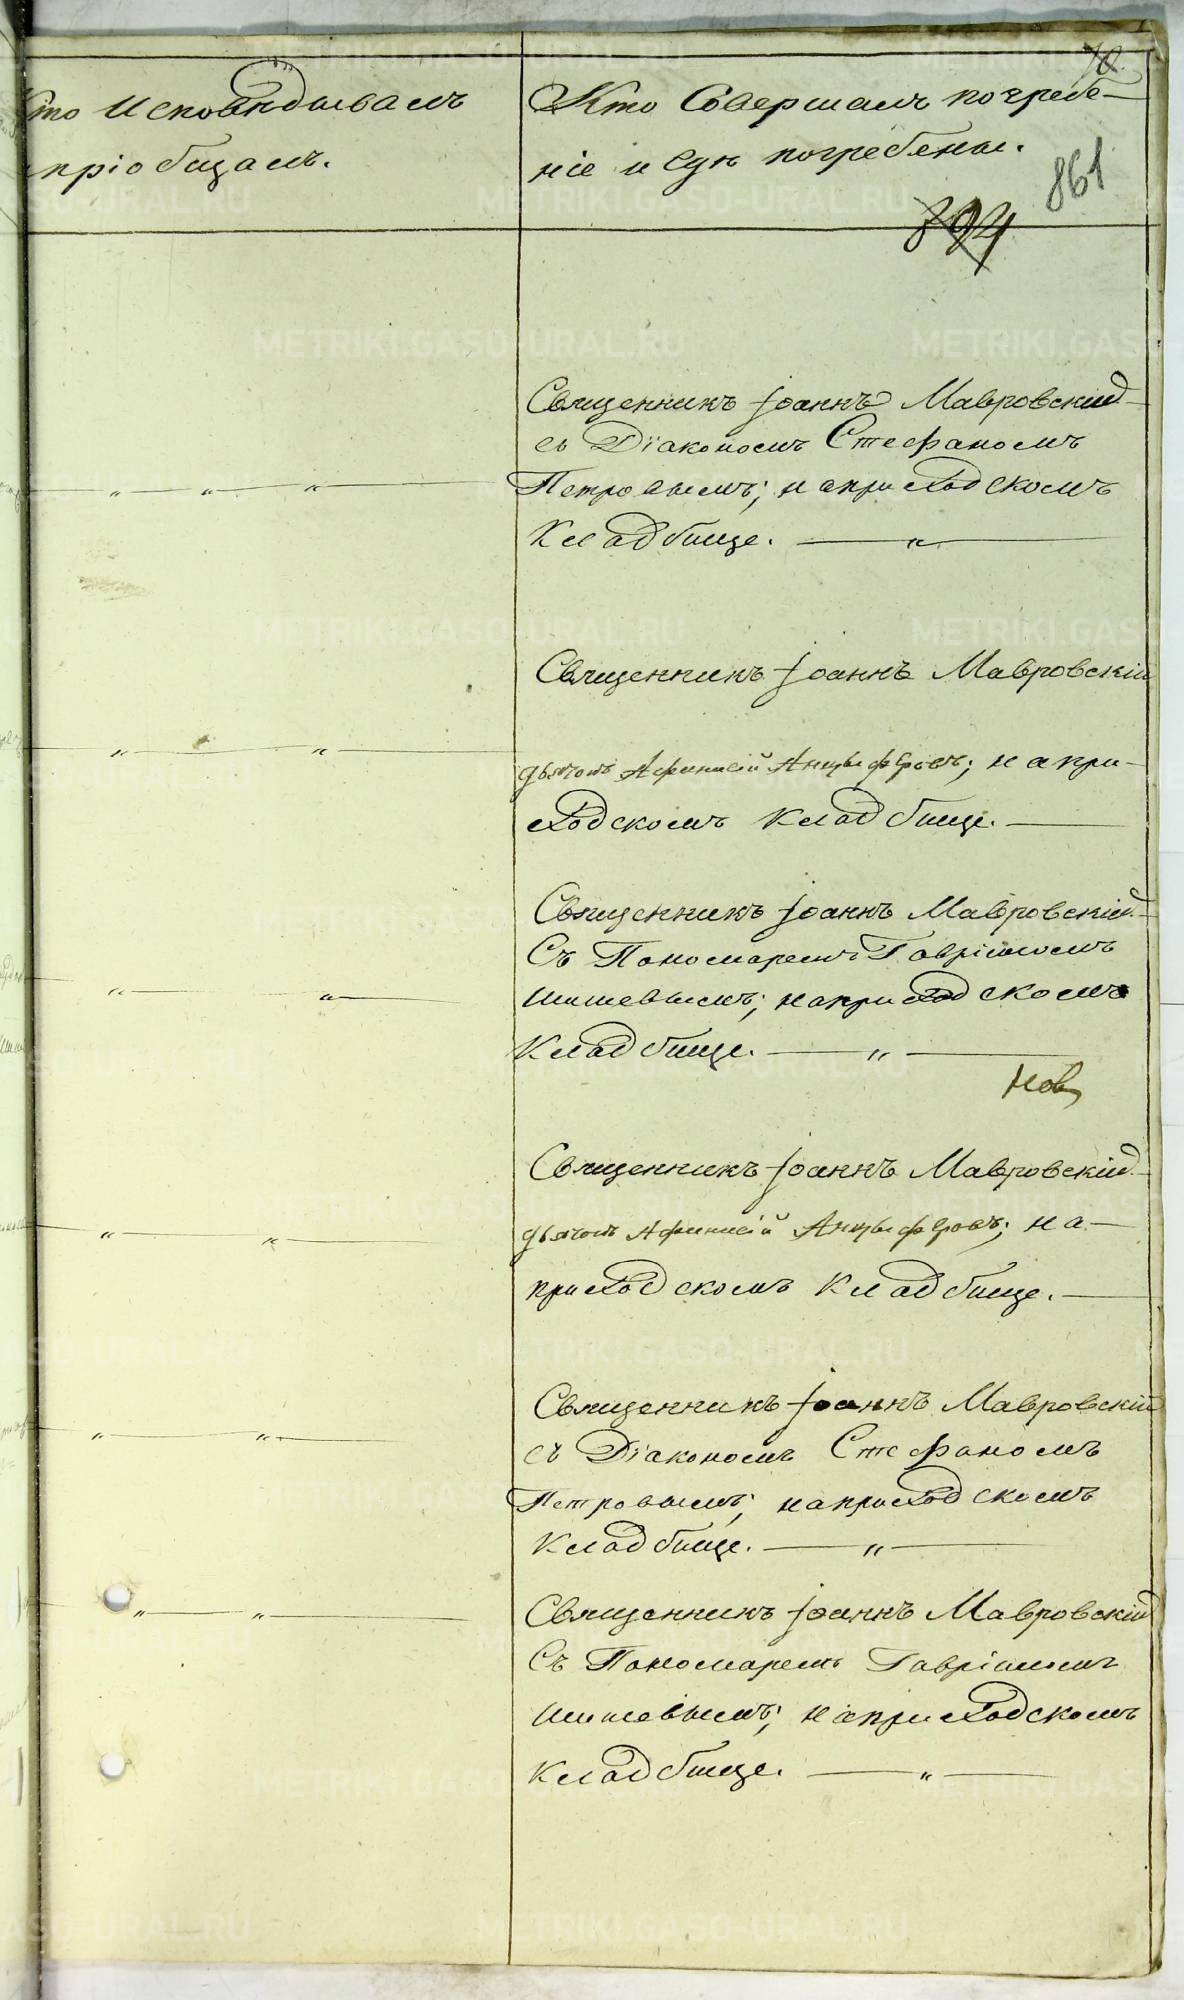 70.
Кто Исповѣдывалъ
и пріобщалъ.
Кто Совершалъ погребе-
ніе и гдѣ погребены.
861
894
Священникъ Іоаннъ Мавровскій
съ Діакономъ Стефаномъ
Петровымъ; на приходскомъ
Кладбище.
Священникъ Іоаннъ Мавровскій
дьячокъ Афинасій Анцыферовъ; на при-
ходскомъ Кладбище.
Священникъ Іоаннъ Мавровскій
Съ Пономаремъ Гавріиломъ
Шишевымъ; на приходскомъ
Кладбище.
Нов
Священникъ Іоаннъ Мавровскій
дьячокъ Афинасій Анцыферовъ; на
приходскомъ Кладбище.
Священникъ Іоаннъ Мавровскій
съ Діакономъ Стефаномъ
Петровымъ; на приходскомъ
Кладбище.
Священникъ Іоаннъ Мавровскій
Съ Пономаремъ Гавріиломъ
Шишевымъ; на приходскомъ
Кладбище.
METRIKI.GASO-URAL.RU